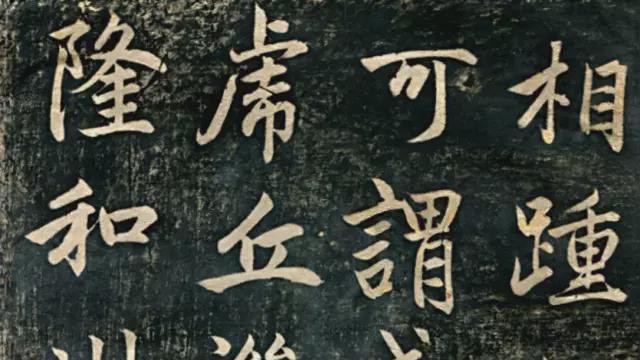 相踵
可謂
虎丘
隆和